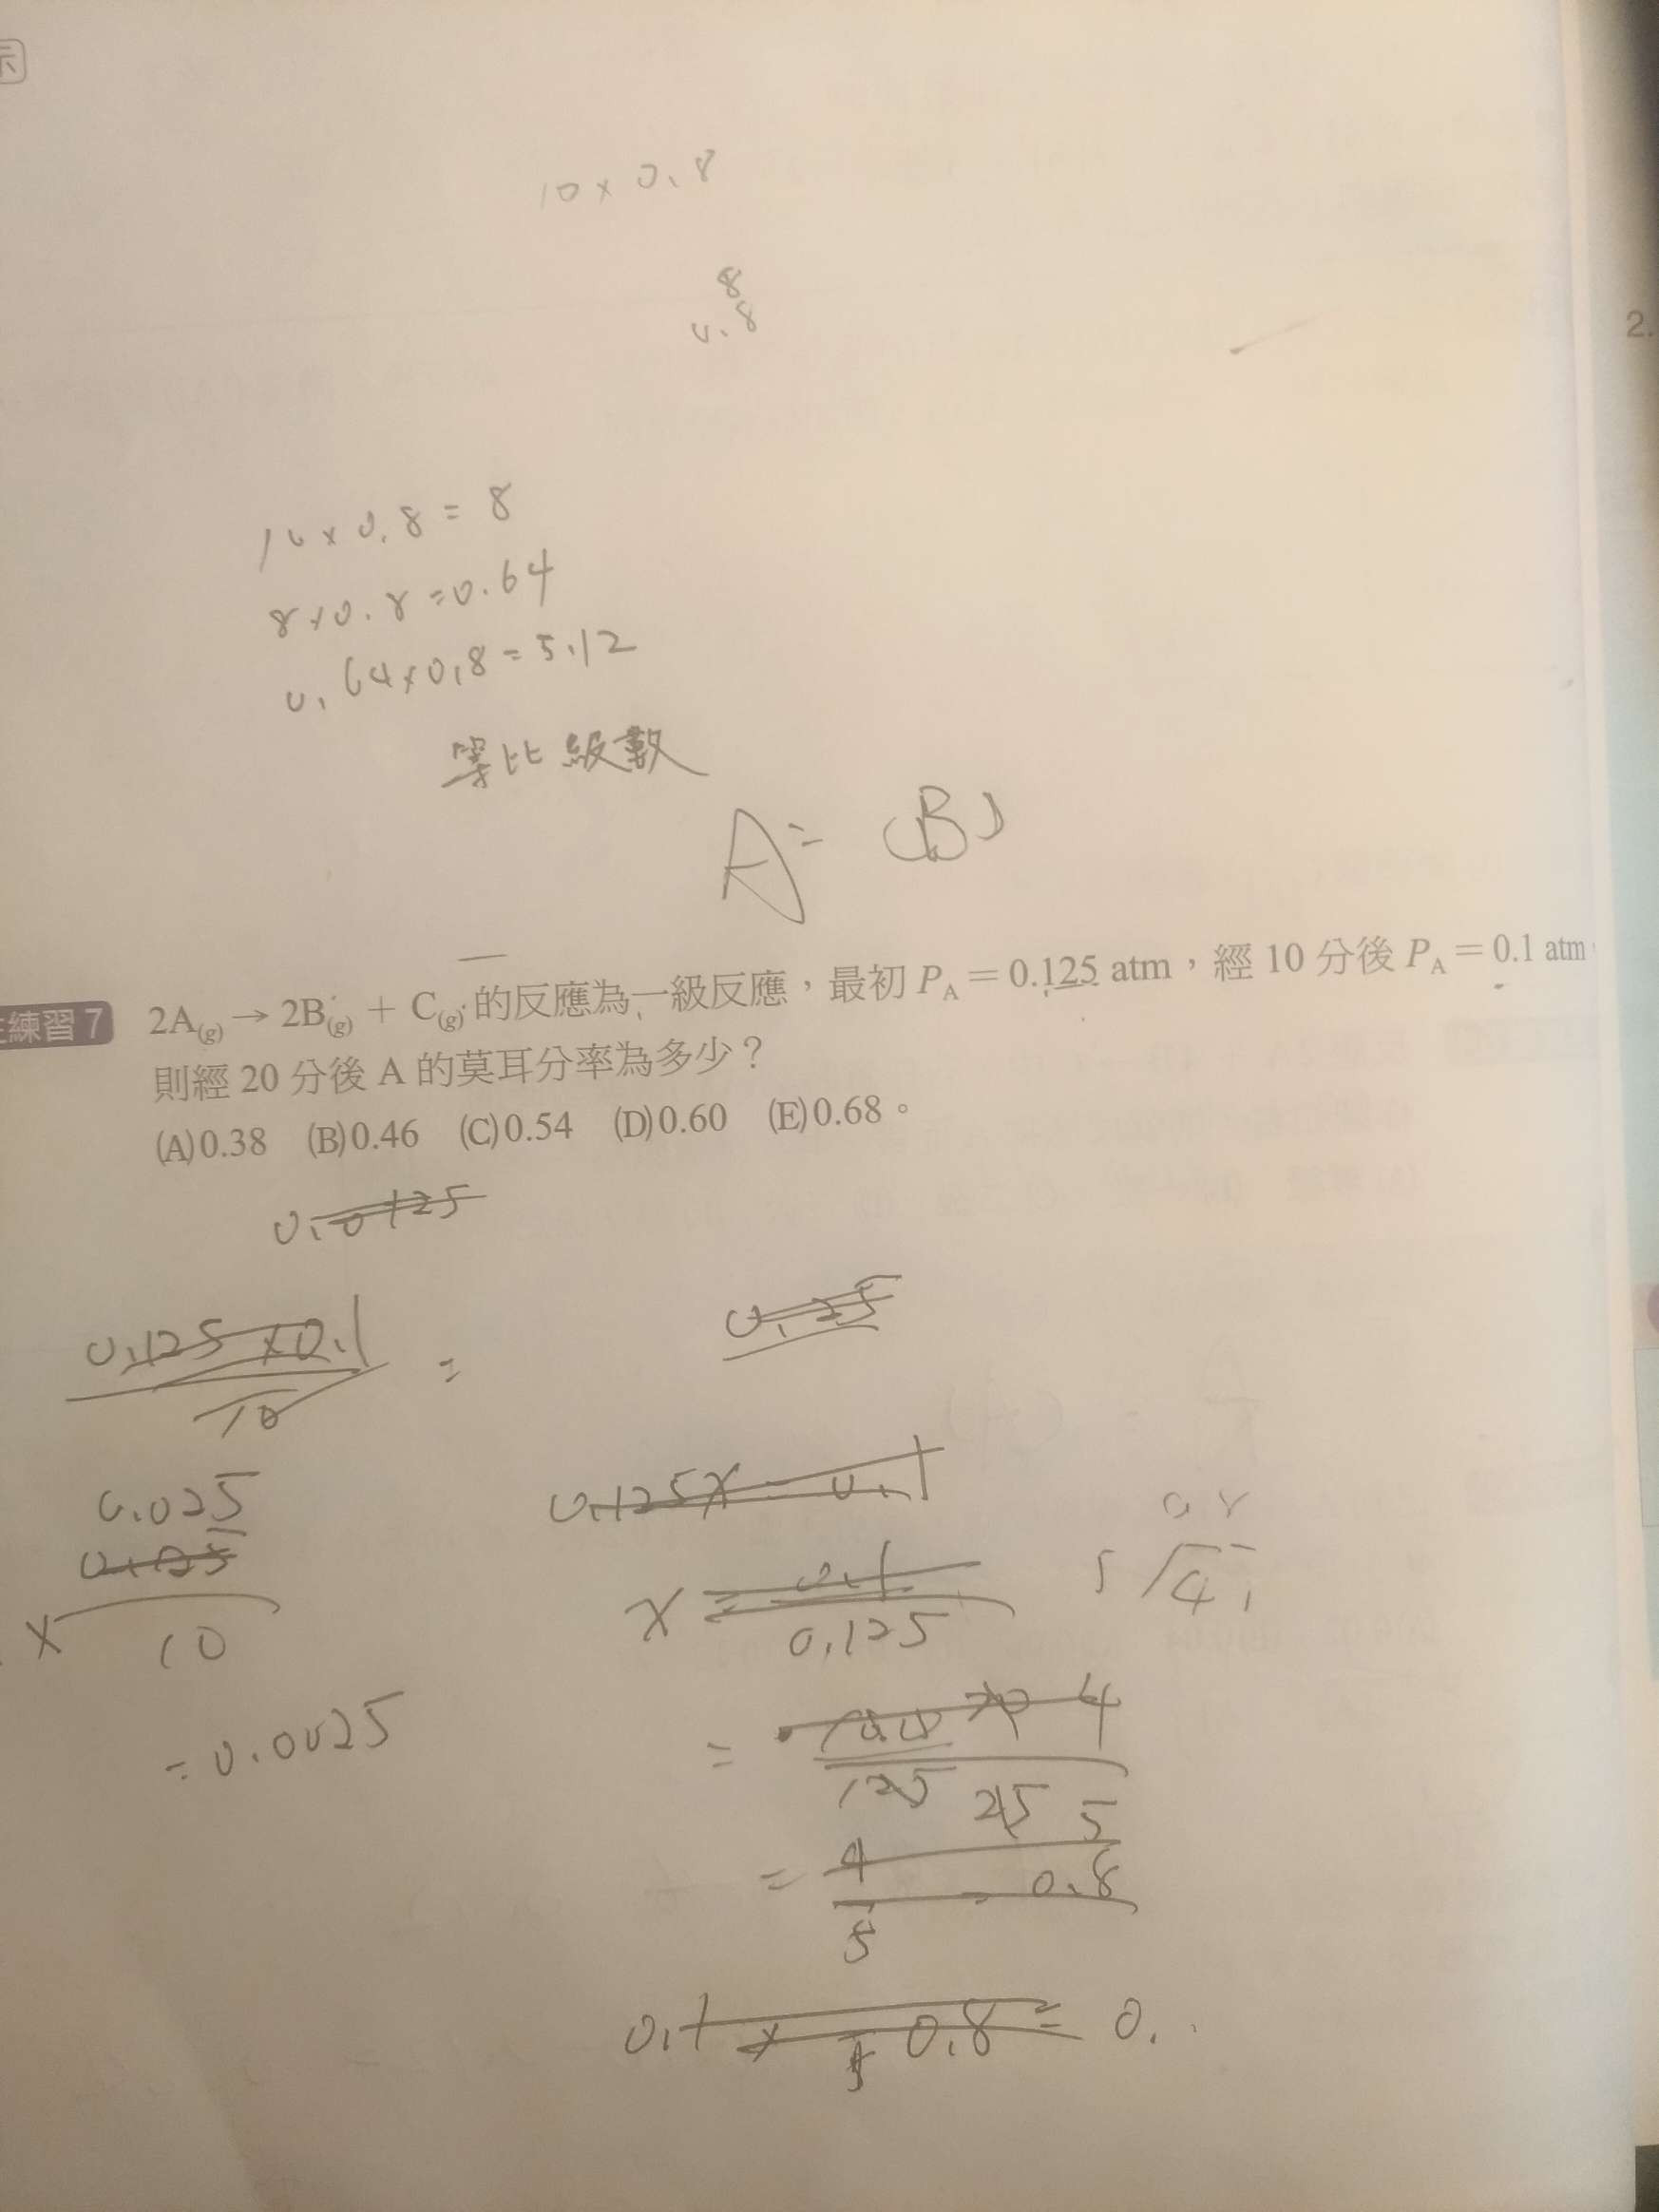 示
10 × 0.8
8
0.8
2.
10 × 0.8 = 8
8 × 0.8 = 0.64
0.64 × 0.8 = 5.12
等比級數
A = (B)
練習 7 2A(g) → 2B(g) + C(g) 的反應為一級反應，最初 PA = 0.125 atm，經 10 分後 PA = 0.1 atm
則經 20 分後 A 的莫耳分率為多少？
(A)0.38 (B)0.46 (C)0.54 (D)0.60 (E)0.68。
0.0125
0.125 × 0.1
10
=
0.25
0.025
10
= 0.0025
0.125x = 0.1
x = 0.1
0.125
5 4
=
125 25 5
= 4 = 0.8
5
0.1 × 0.8 = 0.